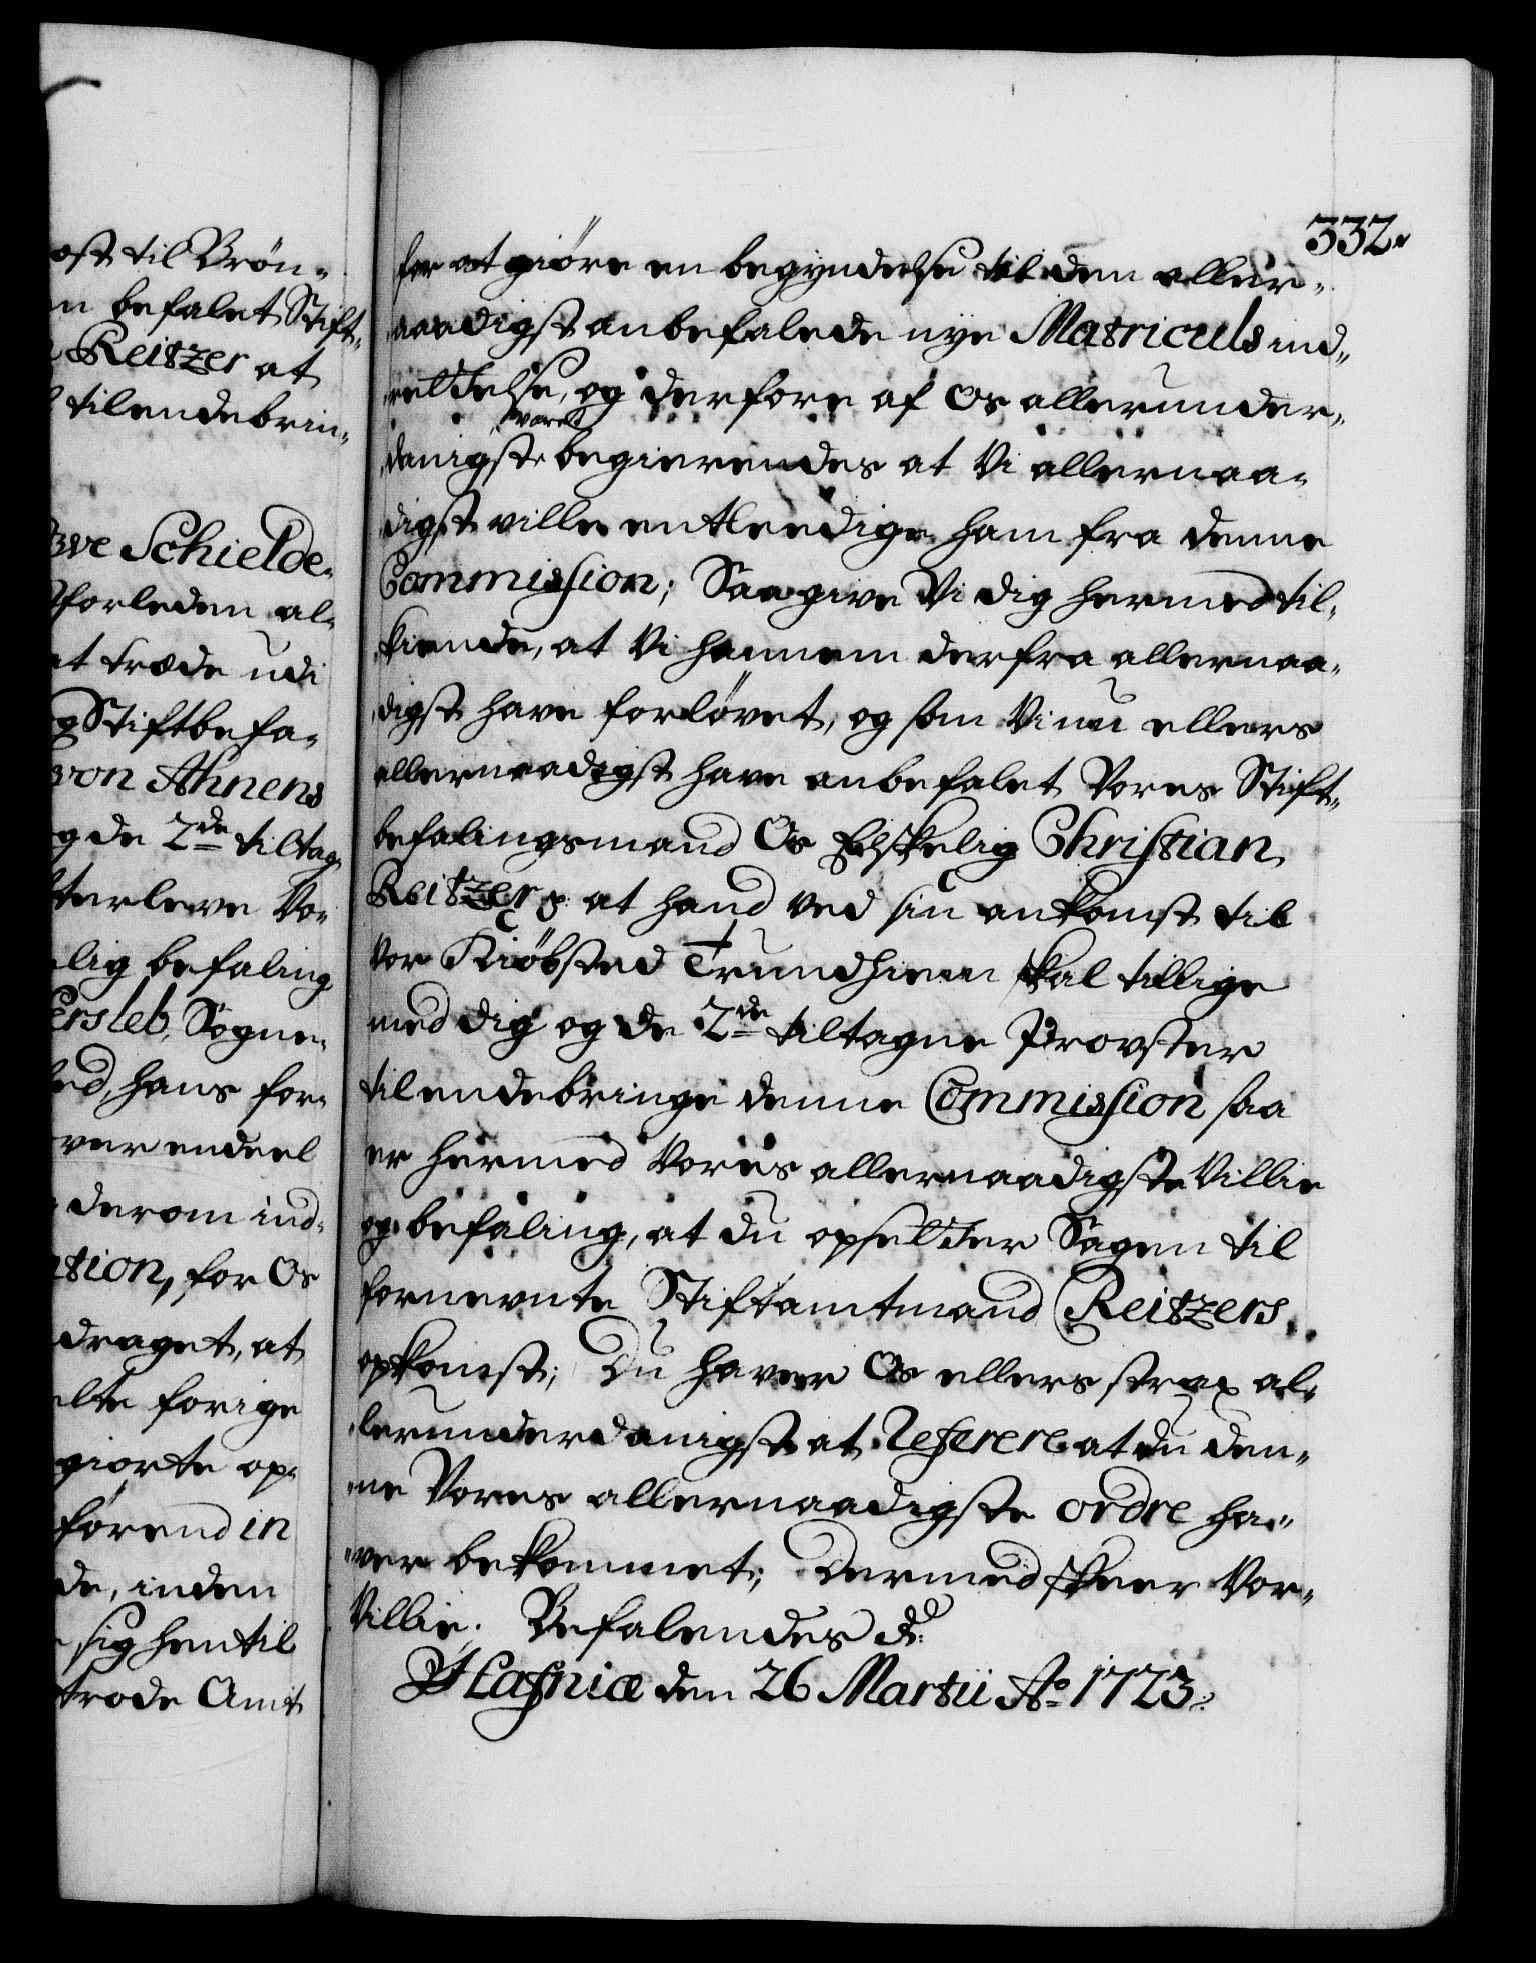 ost til Brön-
n befalet Stift-
Reitzer at
tilendebrin-
ve Schielde-
forleden al-
at træde udi
og Stiftbefa-
von Ahnens
og de 2de tiltag
terleve Vo-
lig befaling
ersleb, Sogne-
ed, hans for-
ver endeel
derom ind-
tion, for Os
draget, at
elte forige
giorte op-
förend in
de, inden
sig hentil
trode Amt
332.
for at giöre en begyndelse til den aller-
naadigst anbefalede nye Matriculs ind-
rettelse, og derfore af Os allerunder-
værel
danigste begierendes at Vi allernaa-
digst ville entleedige ham fra denne
Commission; Saa give Vi dig hermed til-
kiende, at Vi hannem derfra allernaa-
digst have forlövet, og som Vi nu ellers
allernaadigst have anbefalet Vores Stift-
befalingsmand Os Elskelig Christian
Reitzer p: at hand ved sin ankomst til
vor Kiöbsted Trundhiem skal tillige
med dig og de 2de tiltagne Provster
tilendebringe denne Commission saa
er hermed Vores allernaadigste Villie
og befaling, at du opsetter Sagen til
fornevnte Stiftamtmand Reitzers
opkomst; Du haver Os ellers strax al-
lerunderdanigst at Referere at du den-
ne Vores allernaadigste ordre ha-
ver bekommet; Dermed skeer Vor
Villie. Befalendes d:
Hafniæ den 26 Martii Ao 1723.